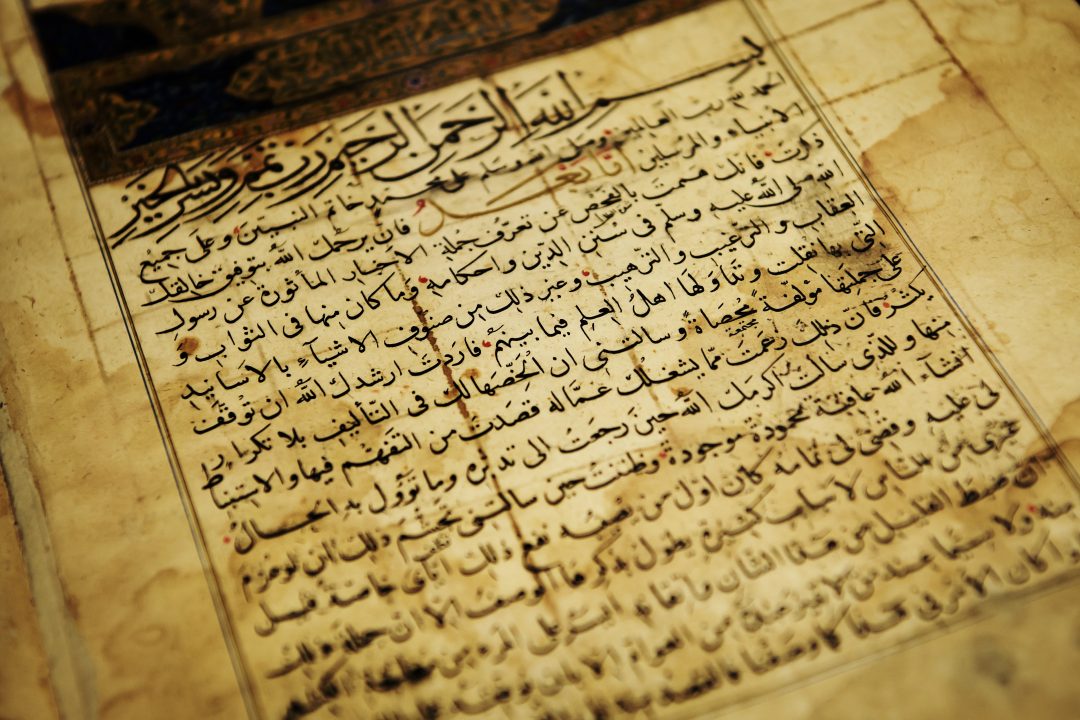 بسم الله الرحمن الرحيم رب تمم ويسر بخير
الحمد لله رب العالمين وصلى الله وسلم على محمد خاتم النبيين وعلى جميع
الانبياء والمرسلين اما بعد فانك يرحمك الله بتوفيق خالقك
ذكرت انك هممت بالفحص عن تعرف جملة الاخبار المأثورة عن رسول
الله صلى الله عليه وسلم في سنن الدين واحكامه وما كان منها في الثواب و
العقاب والترغيب والترهيب وغير ذلك من صنوف الاشياء بالاسانيد
التي بها نقلت وتداولها اهل العلم فيما بينهم فاردت ارشدك الله ان توقف
على جملتها مؤلفة محصاة وسالتني ان الخصها لك في التأليف بلا تكرار
يكثر فان ذلك زعمت مما يشغلك عما له قصدت من التفهم فيها والاستنباط
منها وللذي سالت اكرمك الله حين رجعت الى تدبره وما تؤول به الحال
ان شاء الله عاقبة محمودة موجودة وظننت حين سالتني تجشم ذلك ان لو عزم
لي عليه وقضي لي تمامه كان اول من يصيبه نفع ذلك اياي خاصة قبل
غيري من الناس لاسباب كثيرة يطول بذكرها الوصف الا ان جملة ذلك
ان ضبط القليل من هذا الشان واتقانه ايسر على المرء من معالجة الكثير
منه ولا سيما عند من لا تمييز عنده من العوام الا بان